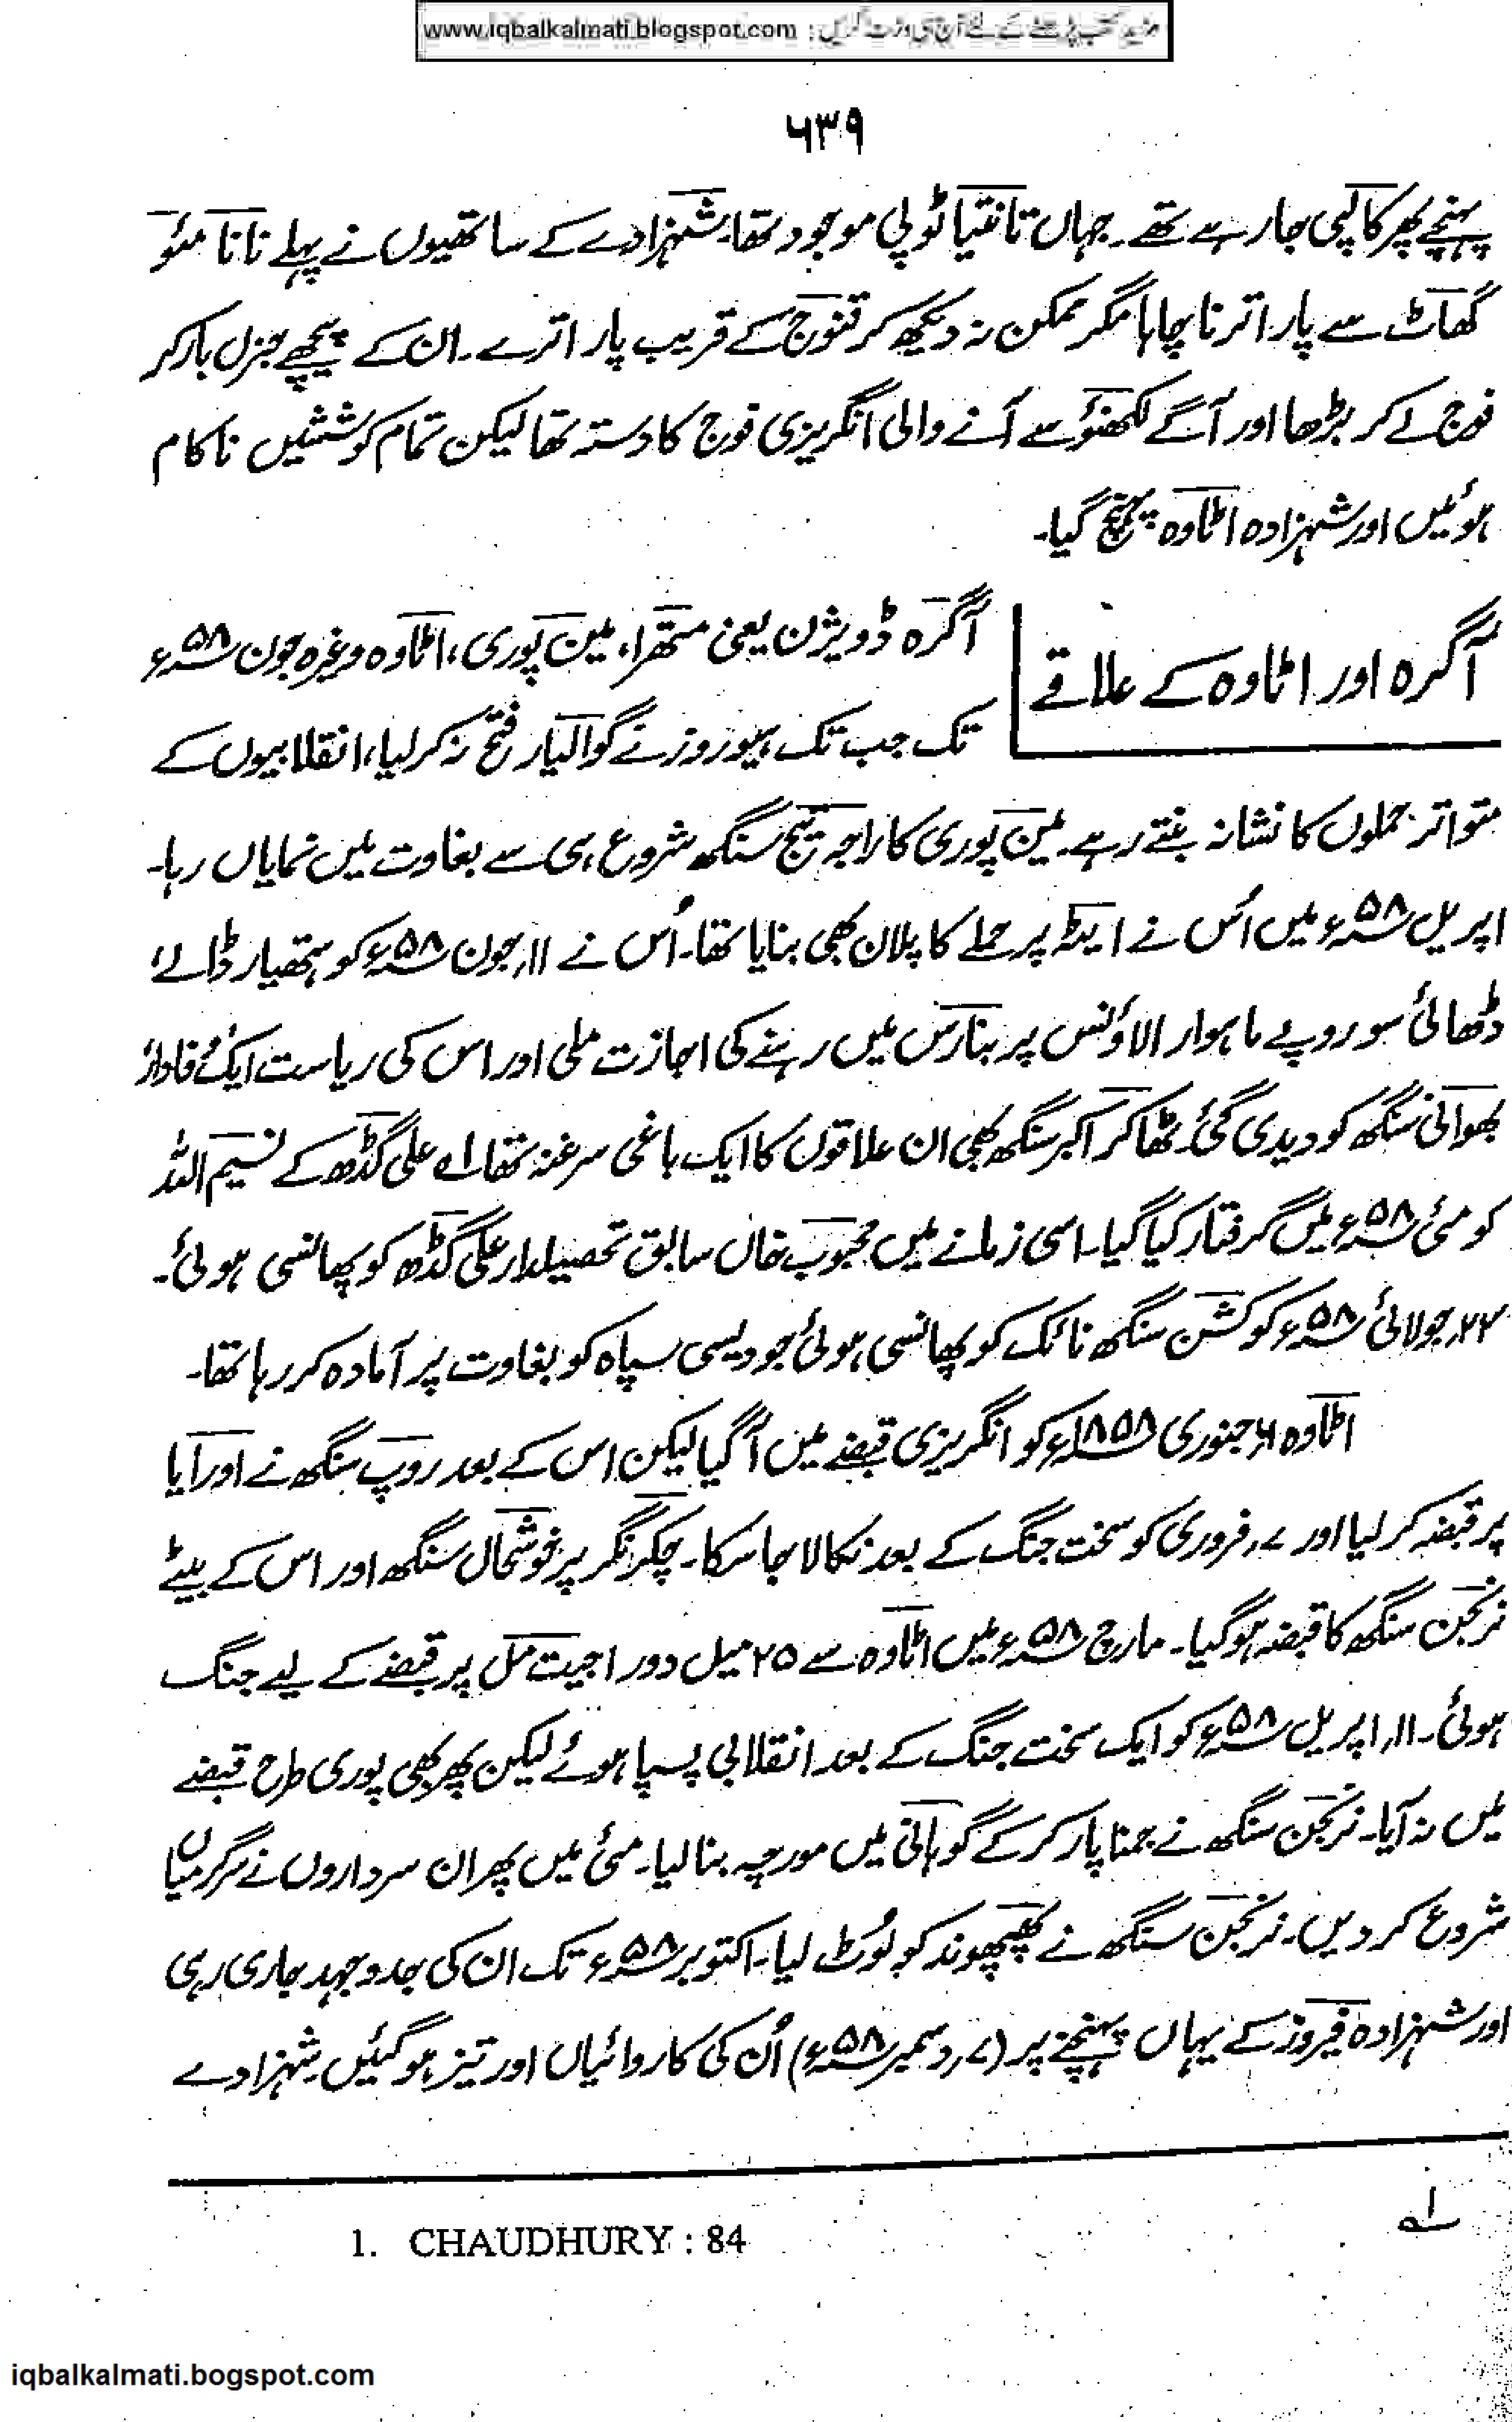 مزید کتب پڑھنے کے لئے آج ہی وزٹ کریں : www.iqbalkalmati.blogspot.com
۶۳۹
پہنچے پھر کالپی جا رہے تھے۔ جہاں تانتیا ٹوپی موجود تھا۔ شہزادے کے ساتھیوں نے پہلے نانا مئو
گھاٹ سے پار اترنا چاہا مگر ممکن نہ دیکھ کر قنوج کے قریب پار اترے۔ ان کے پیچھے جنرل بارکر
فوج لے کر بڑھا اور آگے لکھنؤ سے آنے والی انگریزی فوج کا دستہ تھا لیکن تمام کوششیں ناکام
ہوئیں اور شہزادہ اٹاوہ پہنچ گیا۔
آگرہ اور اٹاوہ کے علاقے
آگرہ ڈویژن یعنی متھرا، مین پوری، اٹاوہ وغیرہ جون ۵۸ء
تک جب تک ہیوروز نے گوالیار فتح نہ کر لیا، انقلابیوں کے
متواتر حملوں کا نشانہ بنتے رہے۔ مین پوری کا راجہ تیج سنگھ شروع ہی سے بغاوت میں نمایاں رہا۔
اپریل ۵۸ء میں اُس نے ایٹہ پر حملے کا پلان بھی بنایا تھا۔ اُس نے ۱۱ر جون ۵۸ء کو ہتھیار ڈالے،
ڈھائی سو روپے ماہوار الاؤنس پر بنارس میں رہنے کی اجازت ملی اور اس کی ریاست ایک وفادار
بھوانی سنگھ کو دیدی گئی۔ ٹھاکر اکبر سنگھ بھی ان علاقوں کا ایک باغی سرغنہ تھا۱ علی گڈھ کے نسیم اللہ
کو مئی ۵۸ء میں گرفتار کیا گیا۔ اسی زمانے میں محبوب خاں سابق تحصیلدار علی گڈھ کو پھانسی ہوئی۔
۲۲ر جولائی ۵۸ء کو کشن سنگھ نائک کو پھانسی ہوئی جو دیسی سپاہ کو بغاوت پر آمادہ کر رہا تھا۔
اٹاوہ ۶ر جنوری ۱۸۵۸ء کو انگریزی قبضے میں آ گیا لیکن اس کے بعد روپ سنگھ نے اورایا
پر قبضہ کر لیا اور ۷ر فروری کو سخت جنگ کے بعد نکالا جا سکا۔ چکر نگر پر خوشحال سنگھ اور اس کے بیٹے
نرنجن سنگھ کا قبضہ ہو گیا۔ مارچ ۵۸ء میں اٹاوہ سے ۲۵ میل دور اجیت مل پر قبضے کے لیے جنگ
ہوئی۔ ۱۱ر اپریل ۵۸ء کو ایک سخت جنگ کے بعد انقلابی پسپا ہوئے لیکن پھر بھی پوری طرح قبضے
میں نہ آیا۔ نرنجن سنگھ نے جمنا پار کر کے گوہانی میں مورچہ بنا لیا۔ مئی میں پھر ان سرداروں نے سرگرمیاں
شروع کر دیں۔ نرنجن سنگھ نے پھپھوند کو لُوٹ لیا۔ اکتوبر ۵۸ء تک ان کی جدوجہد جاری رہی
اور شہزادہ فیروز کے یہاں پہنچنے پر (۷ر دسمبر ۵۸ء) اُن کی کاروائیاں اور تیز ہو گئیں۔ شہزادے
۱
1. CHAUDHURY : 84
iqbalkalmati.bogspot.com